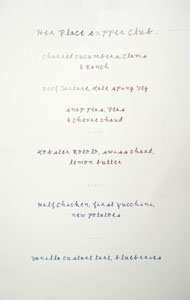 Her Place supper Club.
charred cucumbers, Clams
& Ranch
Beef Tartare, Kate sping veg
snap peas, Peas
& Chevre Chaud
.....
Lobster Rotolo, swiss chard,
lemon butter
.....
Half Chicken, first zucchini,
new potatoes
.....
Vanilla custart tart, blueberries